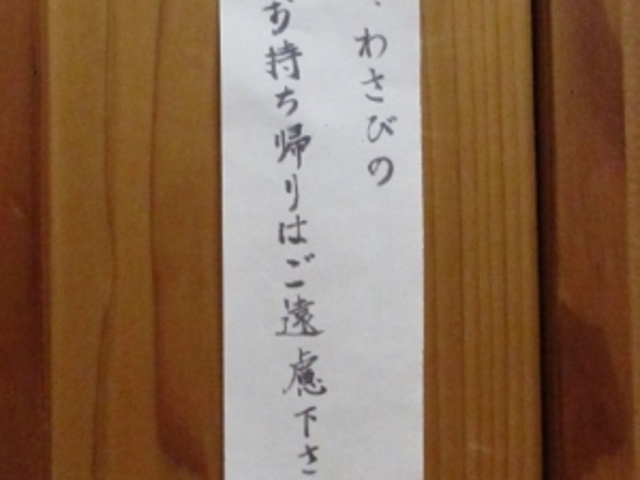 、わさびの
お持ち帰りはご遠慮下さ